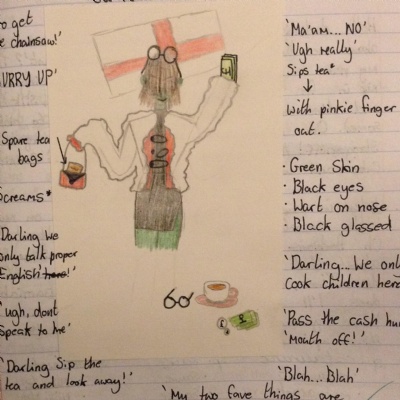 to get
chainsaw!'
URRY UP'
Spare tea
bags
Screams*
Darling We
only talk proper
English here!'
'ugh, dont
speak to me'
'Darling Sip the
tea and look away!'
'Ma'am... NO'
'Ugh really'
Sips tea*
with pinkie finger
out.
· Green Skin
· Black eyes
· Wart on nose
· Black glassed
'Darling... We onl
Cook children here
'Pass the cash hu
Mouth off!'
'Blah... Blah'
'My two fave things are